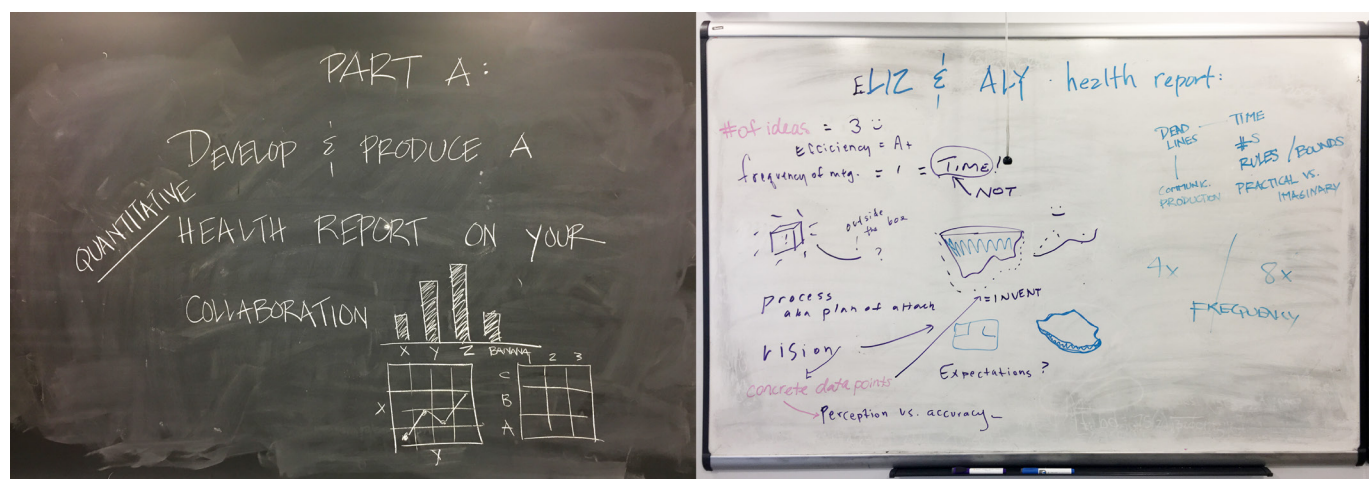 PART A:
DEVELOP & PRODUCE A
QUANTITATIVE
HEALTH REPORT ON YOUR
COLLABORATION
X Y Z BANANA
1 2 3
C
B
A
X
Y
ELIZ & ALY · health report:
#of ideas = 3
Efficiency = A+
frequency of mtg. = 1 = TIME!
NOT
outside
the box
?
process
aka plan of attack
= INVENT
vision
Expectations?
concrete data points
Perception vs. accuracy
DEAD
LINES
COMMUNIC.
PRODUCTION
TIME
#S
RULES / BOUNDS
PRACTICAL VS.
IMAGINARY
4x / 8x
FREQUENCY